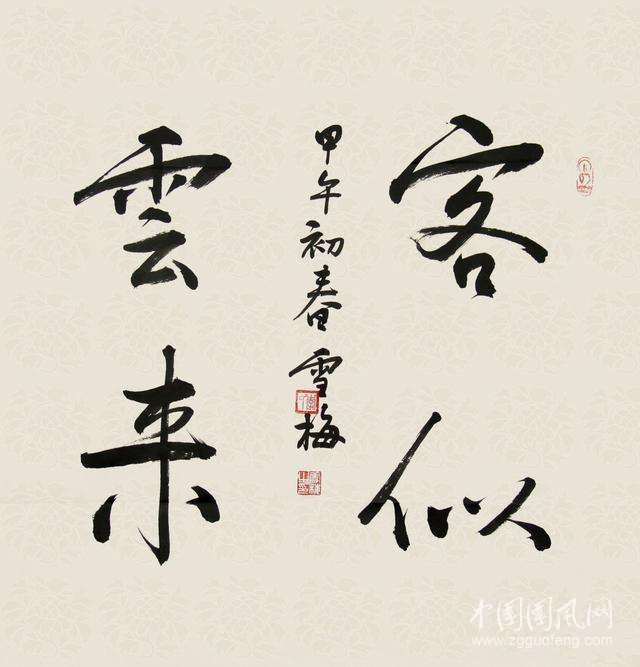 客似
雲来
甲午初春雪梅
中国国风网
www.zgguofeng.com